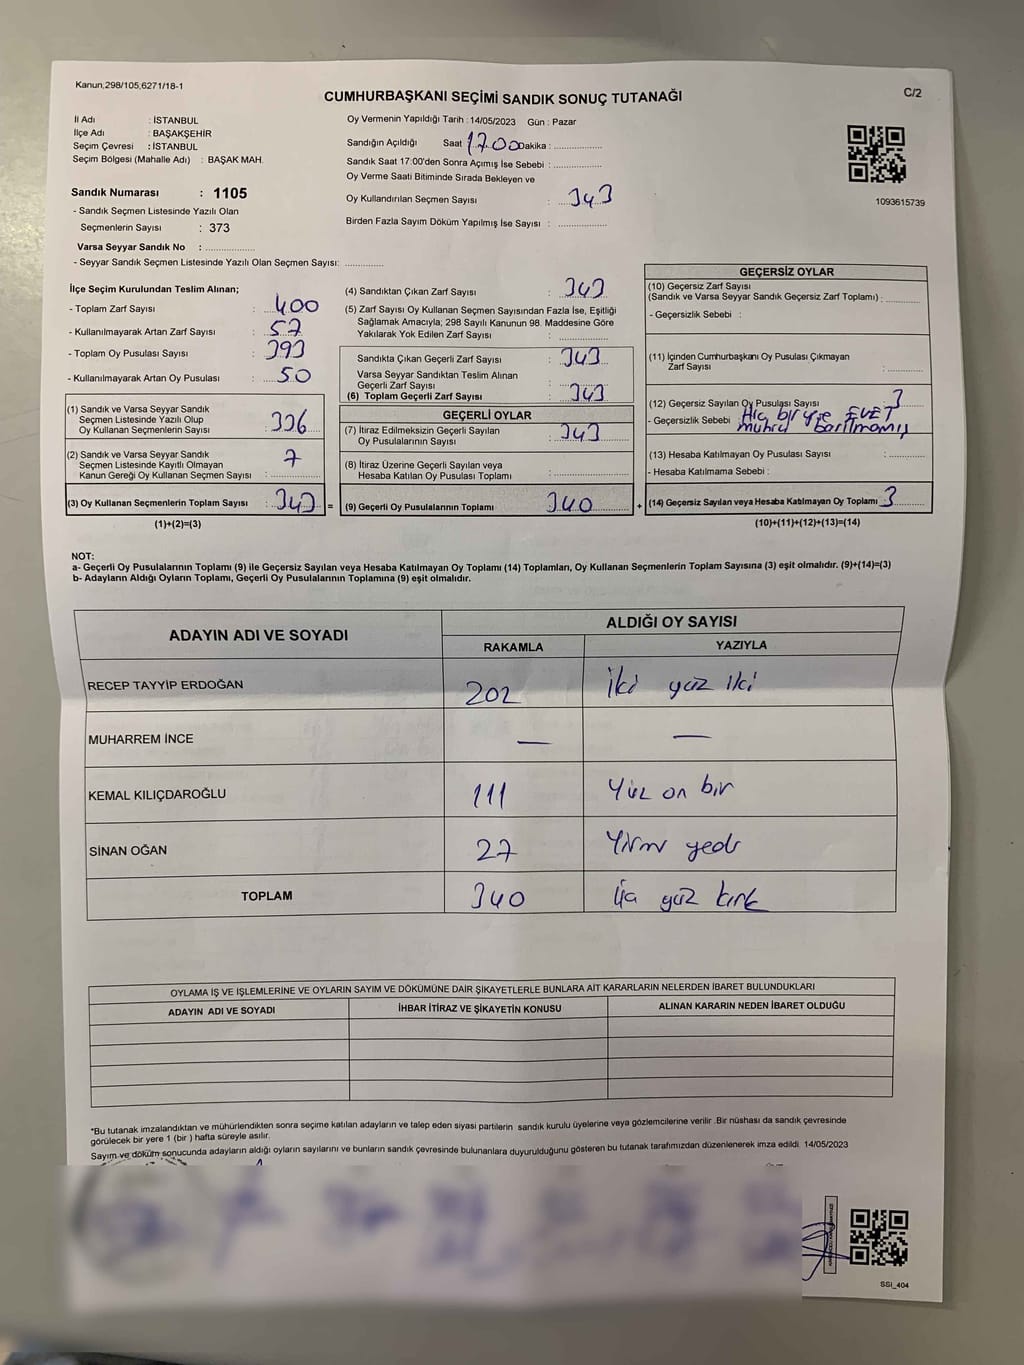 Kanun,298/105,6271/18-1
CUMHURBAŞKANI SEÇİMİ SANDIK SONUÇ TUTANAĞI
C/2
İl Adı : İSTANBUL
İlçe Adı : BAŞAKŞEHİR
Seçim Çevresi : İSTANBUL
Seçim Bölgesi (Mahalle Adı) : BAŞAK MAH.
Sandık Numarası : 1105
- Sandık Seçmen Listesinde Yazılı Olan
Seçmenlerin Sayısı : 373
Varsa Seyyar Sandık No :
- Seyyar Sandık Seçmen Listesinde Yazılı Olan Seçmen Sayısı:
Oy Vermenin Yapıldığı Tarih : 14/05/2023 Gün : Pazar
Sandığın Açıldığı Saat 17.00 Dakika :
Sandık Saat 17:00'den Sonra Açımış İse Sebebi :
Oy Verme Saati Bitiminde Sırada Bekleyen ve
Oy Kullandırılan Seçmen Sayısı : 343
Birden Fazla Sayım Döküm Yapılmış İse Sayısı :
1093615739
İlçe Seçim Kurulundan Teslim Alınan;
- Toplam Zarf Sayısı : 400
- Kullanılmayarak Artan Zarf Sayısı : 57
- Toplam Oy Pusulası Sayısı : 393
- Kullanılmayarak Artan Oy Pusulası : 50
(1) Sandık ve Varsa Seyyar Sandık
Seçmen Listesinde Yazılı Olup
Oy Kullanan Seçmenlerin Sayısı : 336
(2) Sandık ve Varsa Seyyar Sandık
Seçmen Listesinde Kayıtlı Olmayan
Kanun Gereği Oy Kullanan Seçmen Sayısı : 7
(3) Oy Kullanan Seçmenlerin Toplam Sayısı : 343 =
(1)+(2)=(3)
(4) Sandıktan Çıkan Zarf Sayısı : 343
(5) Zarf Sayısı Oy Kullanan Seçmen Sayısından Fazla İse, Eşitliği
Sağlamak Amacıyla; 298 Sayılı Kanunun 98. Maddesine Göre
Yakılarak Yok Edilen Zarf Sayısı :
Sandıkta Çıkan Geçerli Zarf Sayısı : 343
Varsa Seyyar Sandıktan Teslim Alınan
Geçerli Zarf Sayısı :
(6) Toplam Geçerli Zarf Sayısı : 343
GEÇERLİ OYLAR
(7) İtiraz Edilmeksizin Geçerli Sayılan
Oy Pusulalarının Sayısı : 343
(8) İtiraz Üzerine Geçerli Sayılan veya
Hesaba Katılan Oy Pusulası Toplamı :
(9) Geçerli Oy Pusulalarının Toplamı 340 +
GEÇERSİZ OYLAR
(10) Geçersiz Zarf Sayısı
(Sandık ve Varsa Seyyar Sandık Geçersiz Zarf Toplamı) :
- Geçersizlik Sebebi :
(11) İçinden Cumhurbaşkanı Oy Pusulası Çıkmayan
Zarf Sayısı :
(12) Geçersiz Sayılan Oy Pusulası Sayısı : 3
- Geçersizlik Sebebi Hiç bir yre EVET
mührü basılmamış
(13) Hesaba Katılmayan Oy Pusulası Sayısı :
- Hesaba Katılmama Sebebi :
(14) Geçersiz Sayılan veya Hesaba Katılmayan Oy Toplamı : 3
(10)+(11)+(12)+(13)=(14)
NOT:
a- Geçerli Oy Pusulalarının Toplamı (9) ile Geçersiz Sayılan veya Hesaba Katılmayan Oy Toplamı (14) Toplamları, Oy Kullanan Seçmenlerin Toplam Sayısına (3) eşit olmalıdır. (9)+(14)=(3)
b- Adayların Aldığı Oyların Toplamı, Geçerli Oy Pusulalarının Toplamına (9) eşit olmalıdır.
ADAYIN ADI VE SOYADI
ALDIĞI OY SAYISI
RAKAMLA YAZIYLA
RECEP TAYYİP ERDOĞAN 202 İki yüz iki
MUHARREM İNCE — —
KEMAL KILIÇDAROĞLU 111 Yüz on bir
SİNAN OĞAN 27 Yirmi yedi
TOPLAM 340 Üç yüz kırk
OYLAMA İŞ VE İŞLEMLERİNE VE OYLARIN SAYIM VE DÖKÜMÜNE DAİR ŞİKAYETLERLE BUNLARA AİT KARARLARIN NELERDEN İBARET BULUNDUKLARI
ADAYIN ADI VE SOYADI İHBAR İTİRAZ VE ŞİKAYETİN KONUSU ALINAN KARARIN NEDEN İBARET OLDUĞU
*Bu tutanak imzalandıktan ve mühürlendikten sonra seçime katılan adayların ve talep eden siyasi partilerin sandık kurulu üyelerine veya gözlemcilerine verilir .Bir nüshası da sandık çevresinde
görülecek bir yere 1 (bir ) hafta süreyle asılır.
Sayım ve döküm sonucunda adayların aldığı oyların sayılarını ve bunların sandık çevresinde bulunanlara duyurulduğunu gösteren bu tutanak tarafımızdan düzenlenerek imza edildi. 14/05/2023
SSI_404